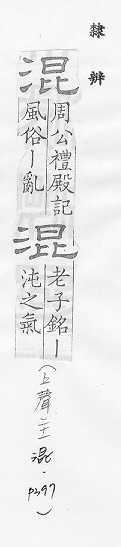 隸辨
混
周公禮殿記
風俗丨亂
混
老子銘丨
沌之氣
(上聲 混·P397)